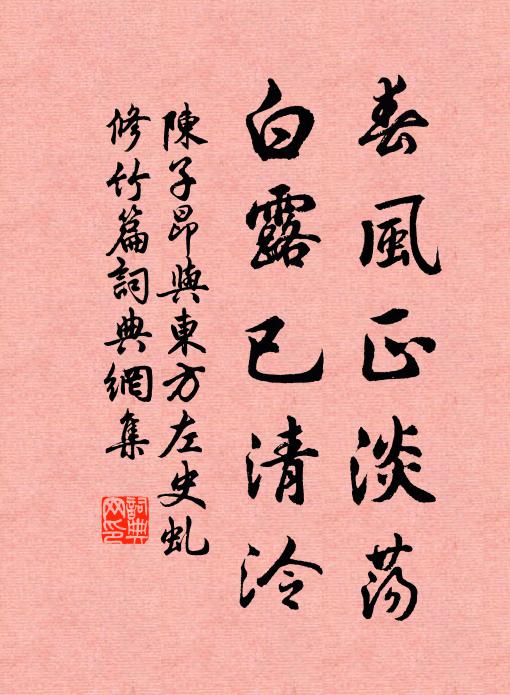 春風正淡蕩
白露已清泠
陳子昂與東方左史虬
修竹篇詞典網集
詞典網印